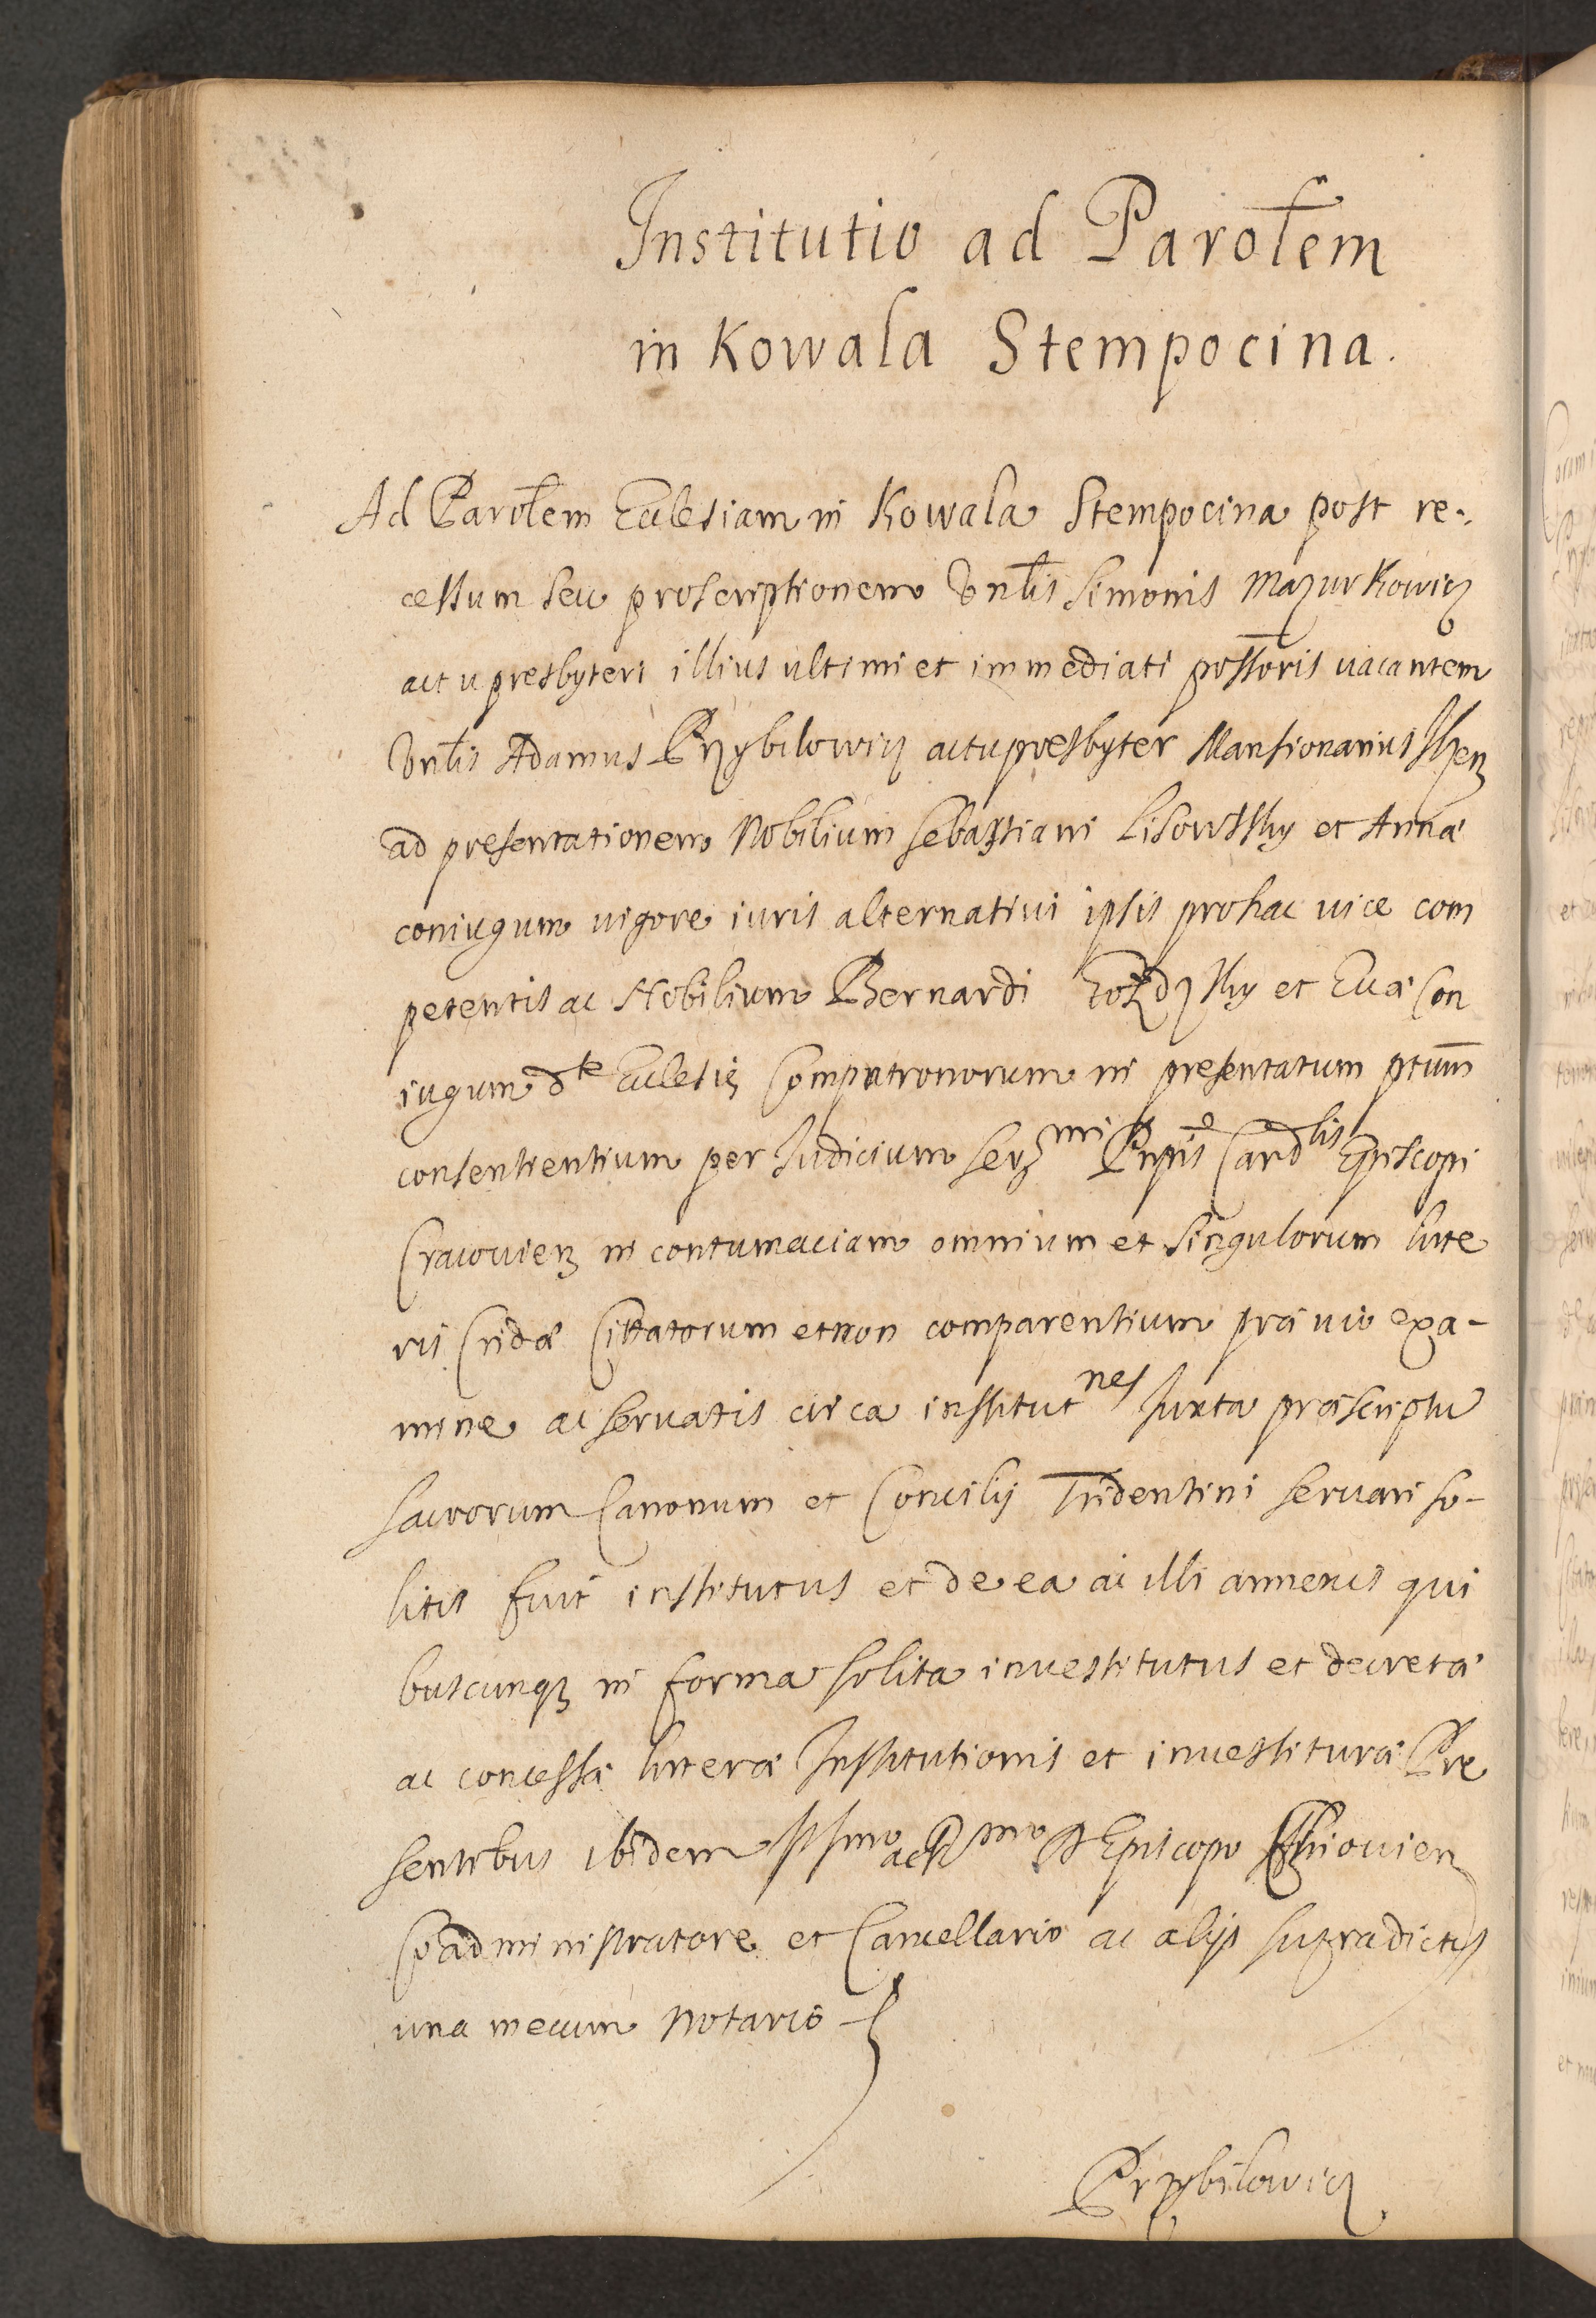 Institutio ad Parołem
in Kowala Stempocina.
Ad Parołem Ecclesiam in Kowala Stempocina post re-
cessum seu proscriptionem Vnłis Simonis Mazurkowicz
actu presbyteri illius ultimi et immediati possoris uacantem
Vnłis Adamus Przybilowicz actu presbyter Mansionarius
ad presentationem Nobilium Sebastiani Lisowskhy et Annæ
coniugum uigore iuris alternatiui ipsis pro hac uice com
petentis ac Nobilium Bernardi et Euæ Con
iugum dte Ecclesię Compatronorum in presentatum ptum
consentientium per Iudicium Sermi Pnpis Cardlis Episcopi
Cracouien in contumaciam omnium et singulorum litte
ris Cridæ Cittatorum et non comparentium præuio exa-
mine ac seruatis circa institutnes Iuxta præscriptu
Sacrorum Canonum et Concilij Tridentini seruari so-
litis fuit institutus et de ea ac illi annexis qui
buscunq in forma solita inuestitutus et decretæ
ac concessæ litteræ Institutionis et inuestituræ Pre
sentibus ibidem Illmo ac Rmo D Episcopo Khiouien
Coadministratore et Cancellario ac alijs supradictis
una mecum Notario
Przybilowicz